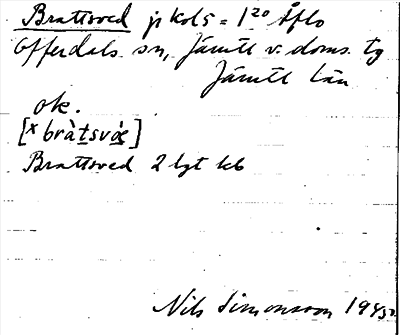 Brattsved jr kols = 1²⁰ Åflo
Offerdals sn, Jämtl v. doms. tg
Jämtl län
ok.
[ˣbràtsvǽ]
Brattsved 2 lgt kb
Nils Simonsson 1945